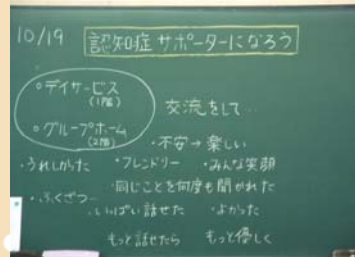 10/19
認知症サポーターになろう
○デイサービス
(1階)
○グループホーム
(2階)
交流をして…
・不安→楽しい
・うれしかった ・フレンドリー ・みんな笑顔
・同じことを何度も聞かれた
・ふくざつ…
・いっぱい話せた ・よかった
もっと話せたら もっと優しく